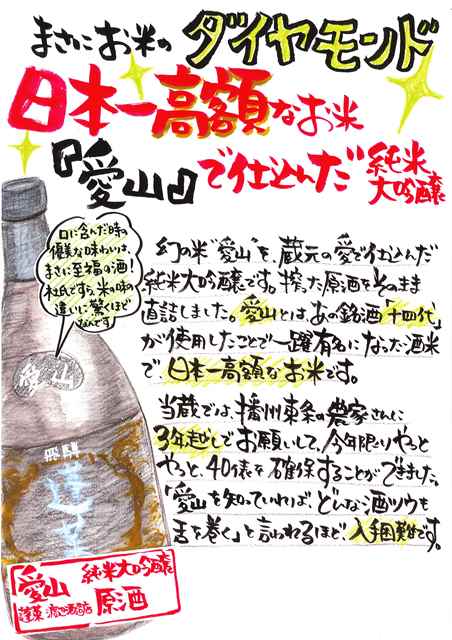 まさにお米のダイヤモンド
日本一高額なお米
『愛山』で仕込んだ純米
大吟醸
口に含んだ時の
優美な味わいは、
まさに至福の酒!
杜氏ですら、米の味の
違いに驚くほど
なんです
幻の米“愛山”を、蔵元の愛で仕込んだ
純米大吟醸です。搾った原酒をそのまま
直詰しました。愛山とは、あの銘酒「十四代」
が使用したことで一躍有名になった酒米
で、日本一高額なお米です。
当蔵では、播州東条の農家さんに
3年越しでお願いして、今年限りやっと
やっと、40俵を確保することができました。
「愛山を知っていれば、どんな酒ツウも
舌を巻く」と言われるほど、入手困難です。
愛山
飛騨
蓬莱
愛山 純米大吟醸
蓬莱 原酒